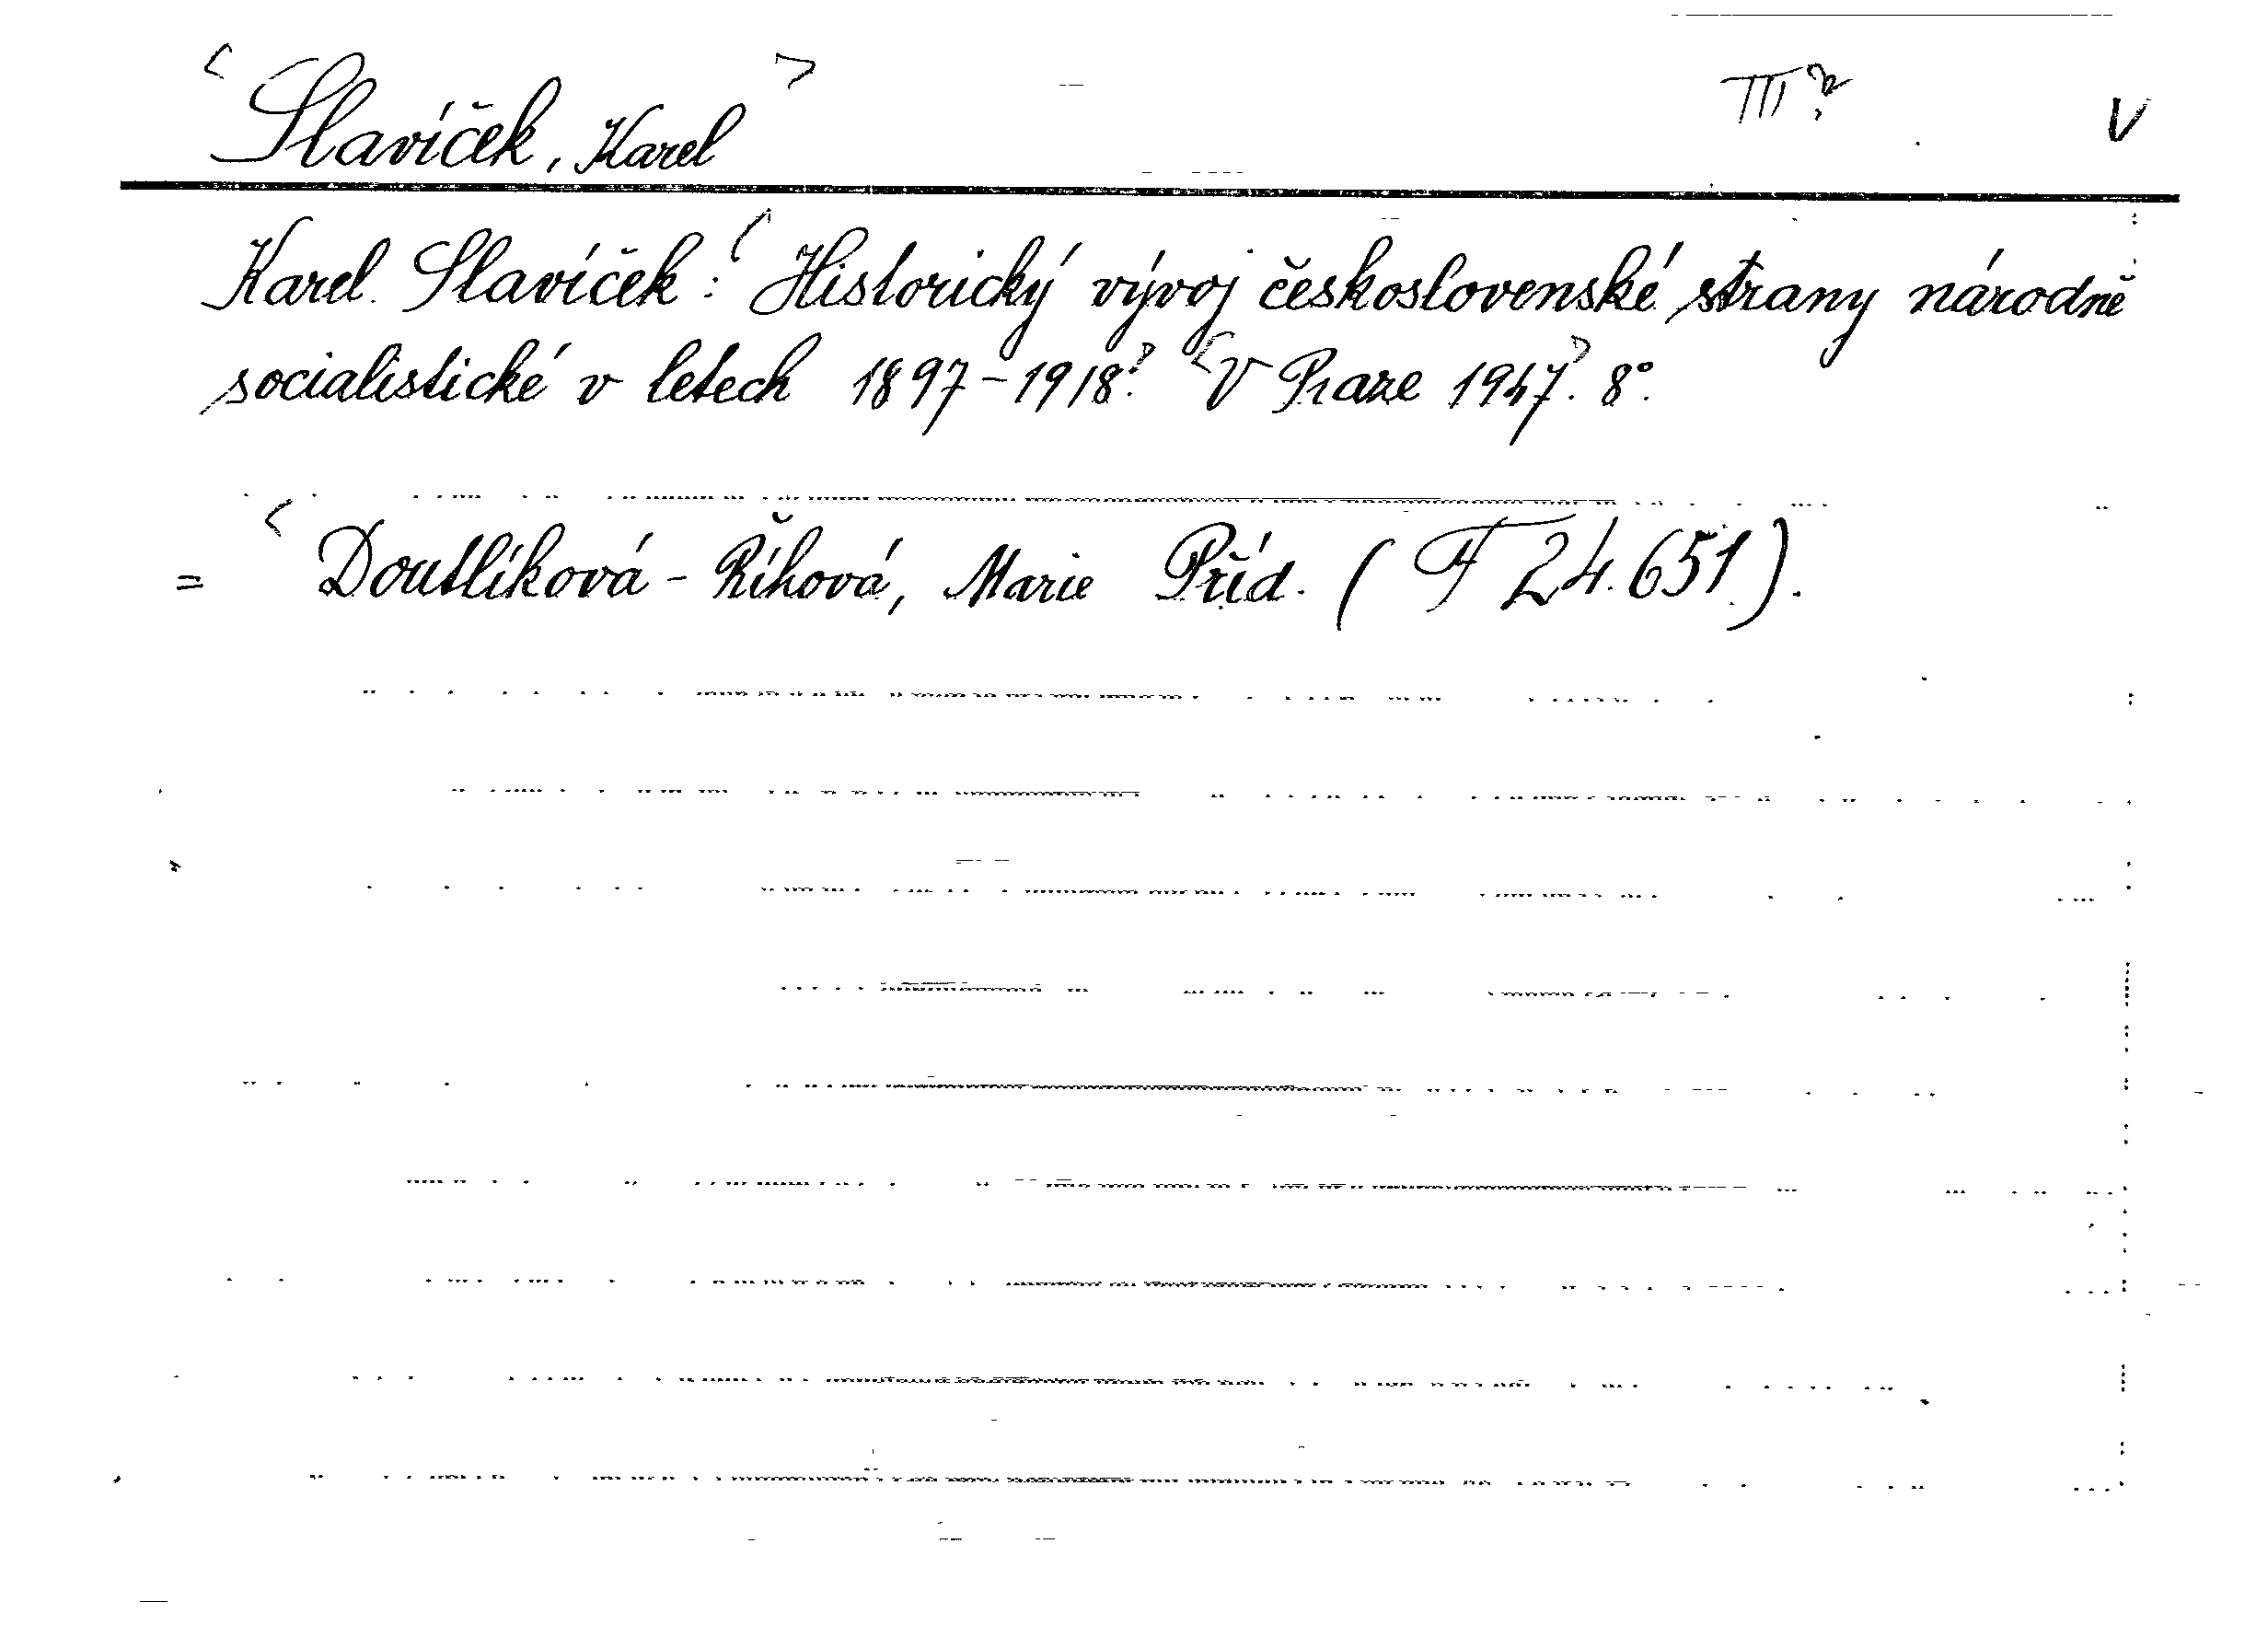 < Slavíček, Karel > III? V
Karel Slavíček: <Historický vývoj československé strany národně
socialistické v letech 1897-1918.> <V Praze 1947>. 8°.
= < Doutlíková - Říhová, Marie Příd. (F 24.651).